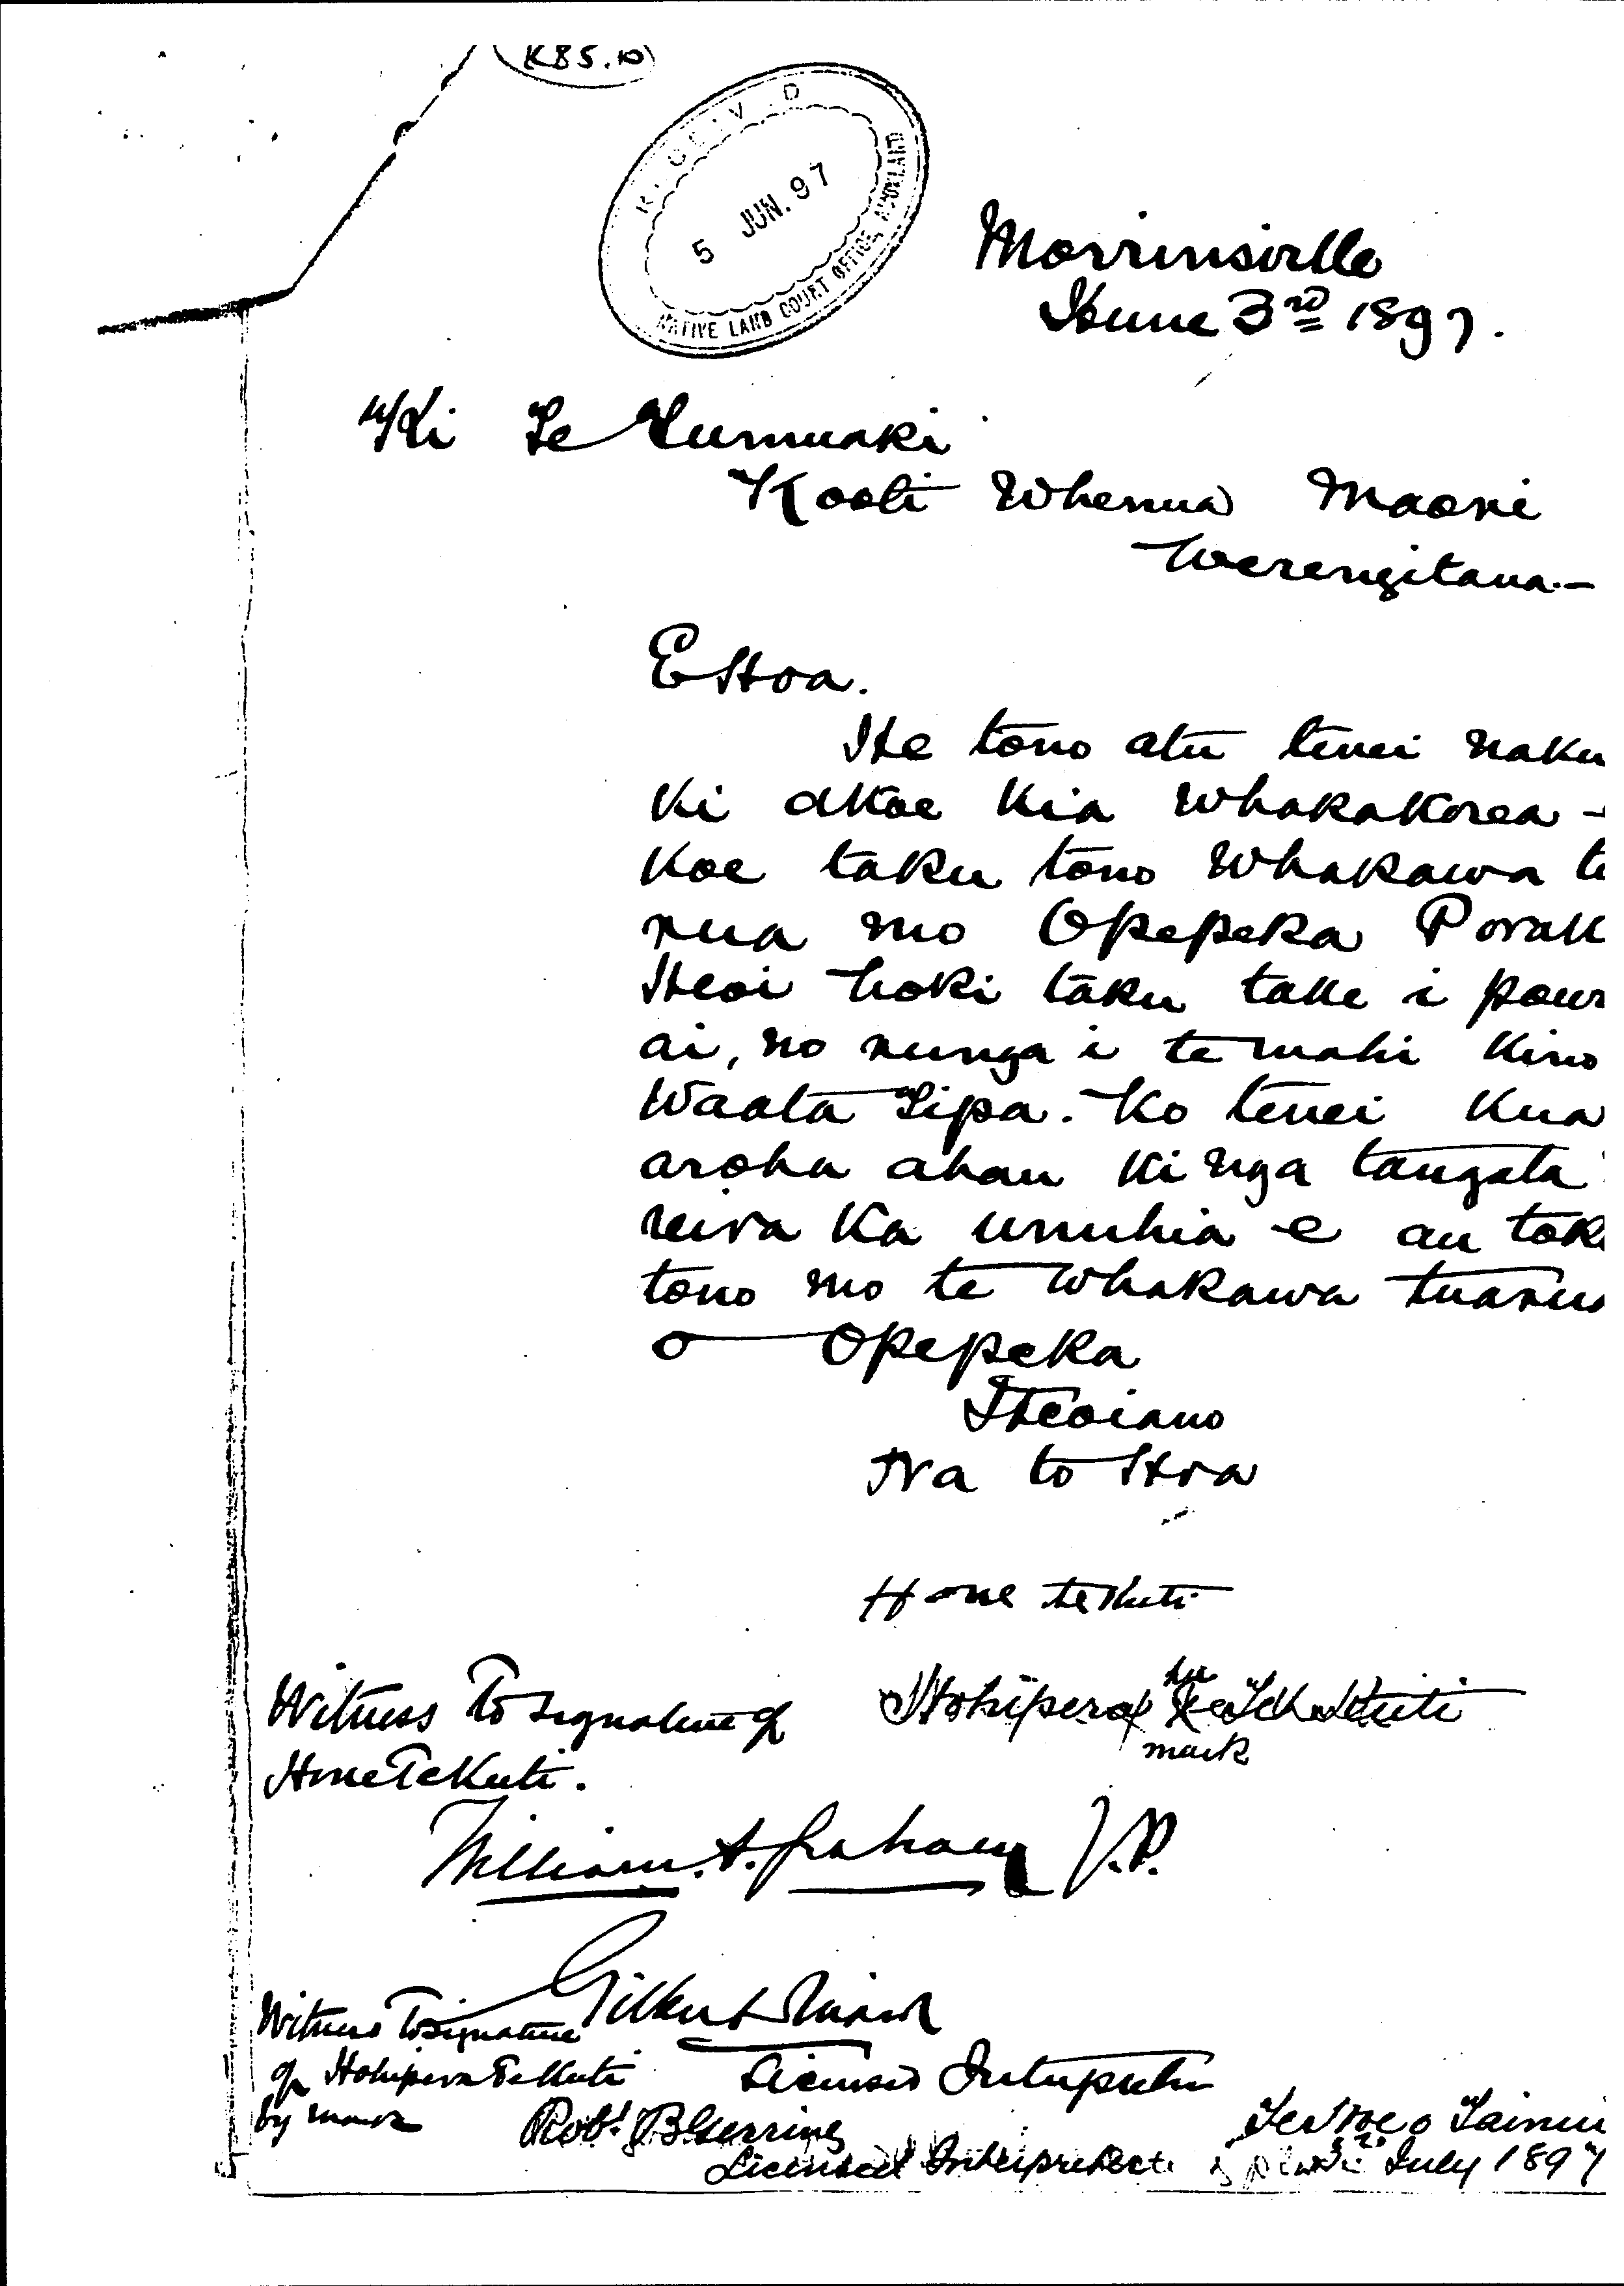 K85.10
RECEIVED
5 JUN. 97
NATIVE LAND COURT OFFICE, AUCKLAND
Morrinsville
Hune 3rd 1897.
Ki Te Tumuaki
Kooti Whenua Maori
Werengitana.-
E Hoa.
He tono atu tenei naku
ki akoe kia whakakorea
koe taku tono whakawa t
nua mo Opepeka Porak
Heoi hoki taku take i pour
ai, no runga i te mahi kino
Waata Tipa. Ko tenei kua
aroha ahau ki nga tangata
reira ka unuhia e au tok
tono mo te whakawa tuanu
o Opepeka
Heoiano
Na to Hoa
Hone te Kuti
Witness to signature of
Hone Te Kuti.
Hohipera X her Te Kuti
mark
William. A. Graham J.P.
Gilbert Mair
Witness to signature
of Hohipera Te Kuti
by mark
Licensed Interpreter
Robt B Gerring
Licensed Interpreter
July 1897